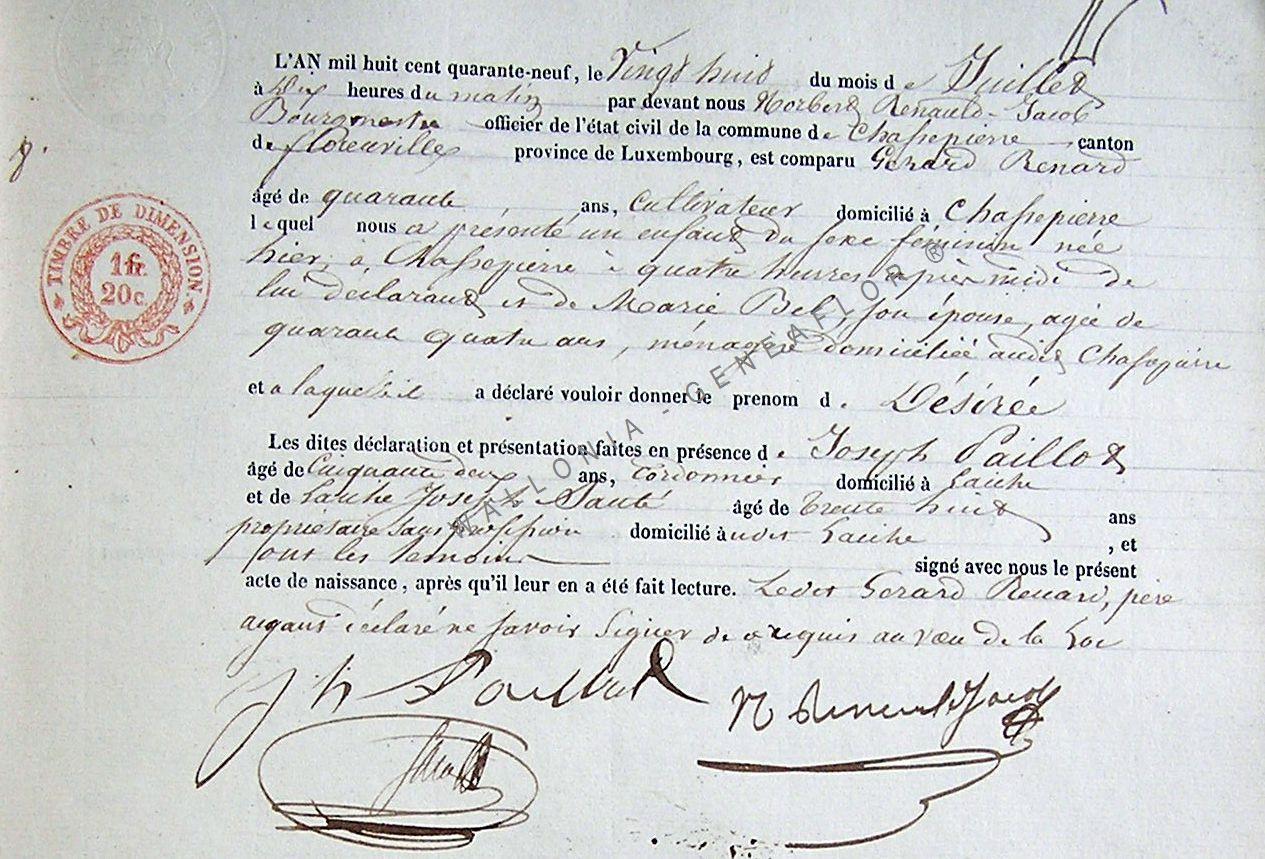 L'AN mil huit cent quarante-neuf, le Vingt huit du mois de Juillet
à Dix heures du matin par devant nous Norbert Renauld-Jacob
Bourgmestre officier de l'état civil de la commune de Chassepierre canton
de florenville province de Luxembourg, est comparu Gérard Renard
âgé de quarante ans, Cultivateur domicilié à Chassepierre
lequel nous a présenté un enfant du sexe féminin née
hier, à Chassepierre à quatre heures après midi de
lui déclarant et de Marie Bel, son épouse, agée de
quarante quatre ans, ménagère domiciliée audit Chassepierre
et a laquelle il a déclaré vouloir donner le prenom de Désirée
Les dites déclaration et présentation faites en présence de Joseph Paillot
âgé de Cinquante deux ans, Cordonnier domicilié à Laiche
et de Joseph âgé de trente huit ans
propriétaire sans profession domicilié à udit Laiche, et
ont les témoins signé avec nous le présent
acte de naissance, après qu'il leur en a été fait lecture. Ledit Gerard Renard, père
ayant déclaré ne savoir signer de ce requis au vœu de la Loi
Jh Paillot
N Renauld Jacob
TIMBRE DE DIMENSION
1 fr.
20 c.
WALLONIA - GENEAFLOR ®